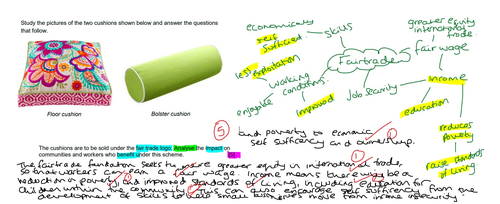 Study the pictures of the two cushions shown below and answer the questions
that follow.
Floor cushion
Bolster cushion
economically
self
sufficient
skills
greater equity
international
trade.
fair wage
Fairtrade
less exploitation
working
conditions
enjoyable
improved
Job security
income
education
reduces
poverty
raise standards
of living.
5
The cushions are to be sold under the fair trade logo. Analyse the impact on
communities and workers who benefit under this scheme.
[5]
end poverty to economic
self sufficiency and ownership.
The fairtrade fundation seeks to more greater equity in international trade,
so that workers can earn a fair wage. Income means there will be a
reduction of poverty and improved standards of living, including education for
children within the community. This can also encourage self sufficiency from the
development of skills to help small businesses move from income insecurity